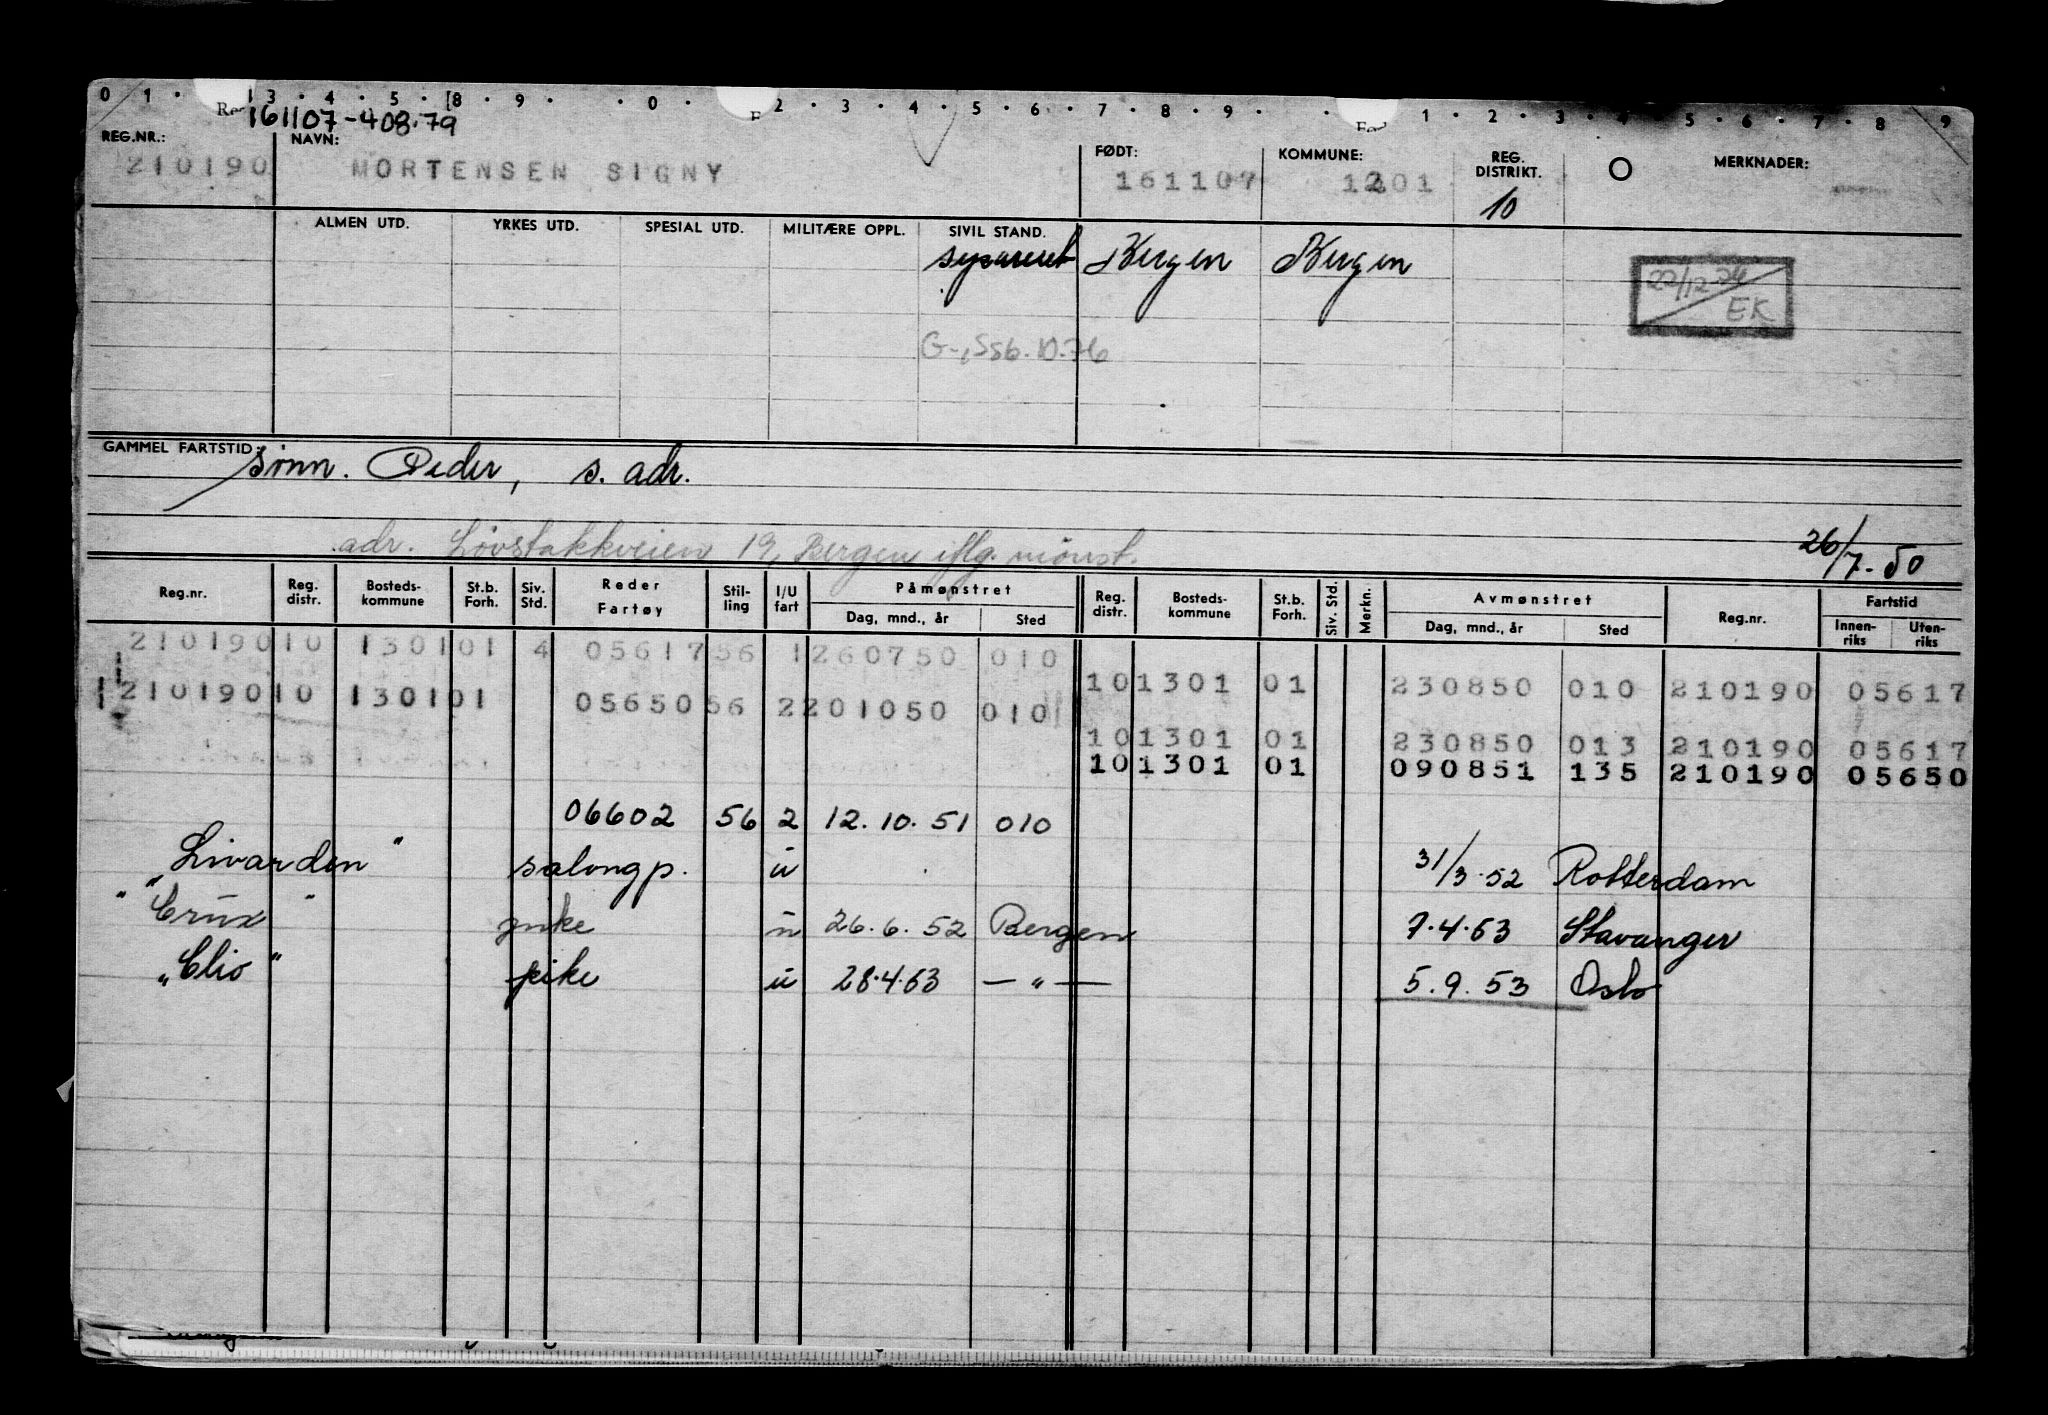 0 1 · 3 · 4 · 5 · 8 · 9 · · 0 · 2 · 3 · 4 · 5 · 6 · 7 · 8 · 9 · · 1 · 2 · 3 · 4 · 5 · 6 · 7 · 8 · 9
161107-408.79
REG.NR.: NAVN: FØDT: KOMMUNE: REG. DISTRIKT. MERKNADER:
210190 MORTENSEN SIGNY 161107 1301 10
ALMEN UTD. YRKES UTD. SPESIAL UTD. MILITÆRE OPPL. SIVIL STAND.
separert Bergen Bergen
22/12-74
EK
G-, Ssb. 10.76
GAMMEL FARTSTID:
sønn. Peder, s. adr.
adr. Løvstakkveien 19, Bergen iflg. mønst.
26/7-50
Reg.nr. Reg. distr. Bosteds-kommune St.b. Forh. Siv. Std. Reder Fartøy Stil-ling I/U fart Påmønstret Dag, mnd., år Sted Reg. distr. Bosteds-kommune St.b. Forh. Siv. Std. Merkn. Avmønstret Dag, mnd., år Sted Reg.nr. Fartstid Innen-riks Uten-riks
210190 10 1301 01 4 05617 56 1 260750 010
10 1301 01 230850 010 210190 05617
210190 10 1301 01 05650 56 2 201050 010
10 1301 01 230850 013 210190 05617
10 1301 01 090851 135 210190 05650
06602 56 2 12.10.51 010
"Livarden" salongp. u 31/3-52 Rotterdam
"Crux" pike u 26.6.52 Bergen 7.4.53 Stavanger
"Clio" pike u 28.4.53 — " — 5.9.53 Oslo